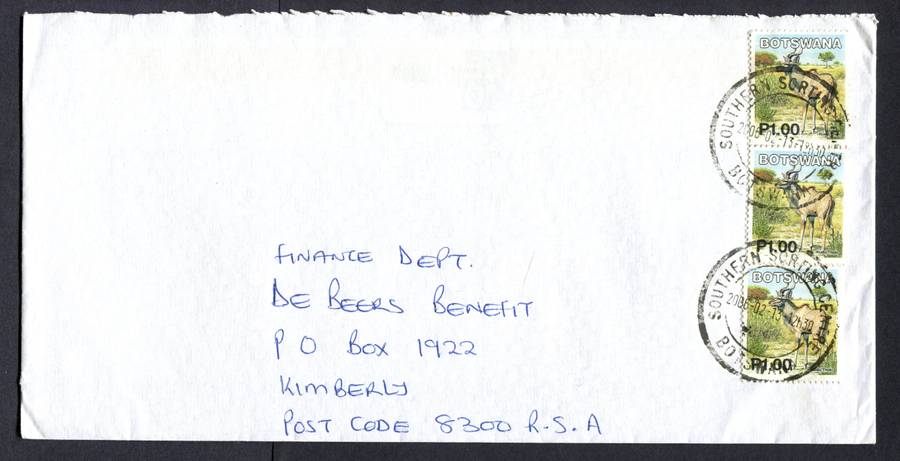 BOTSWANA
P1.00
SOUTHERN SORTING
2006-02-13
BOTSWANA
BOTSWANA
P1.00
BOTSWANA
P1.00
SOUTHERN SORTING CENTRE
2006-02-13 12h30
BOTSWANA
FINANCE DEPT.
DE BEERS BENEFIT
P O BOX 1922
KIMBERLY
POST CODE 8300 R.S.A